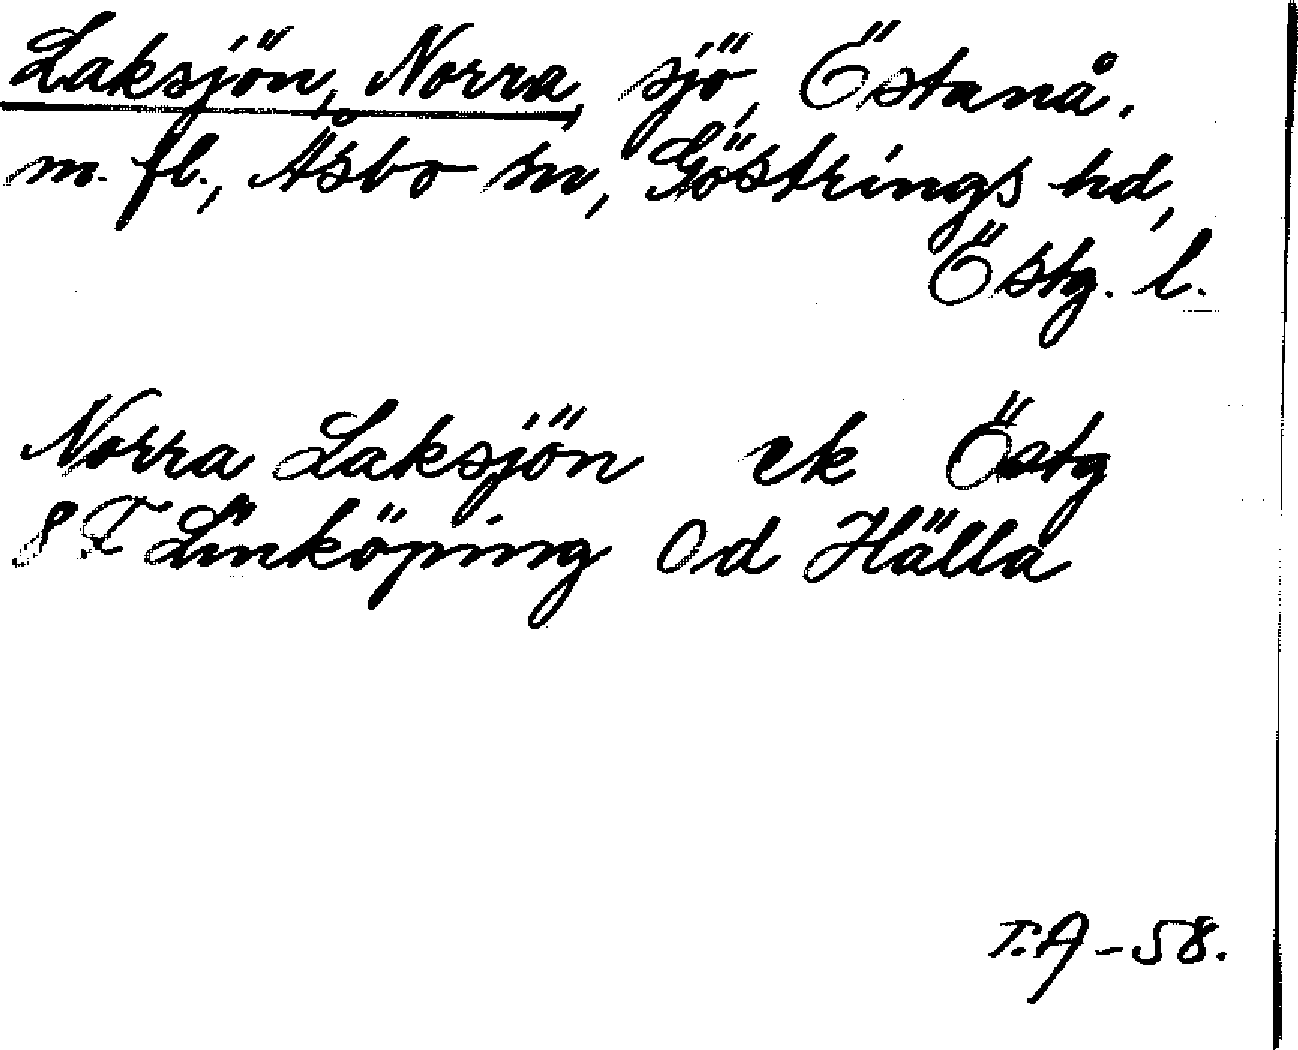 Laksjön, Norra, sjö, Östanå.
m. fl., Åsbo sn, Göstrings hd,
Östg. l.
Norra Laksjön ek Östg
8 F Linköping 0d Hälla
T.A - 58.